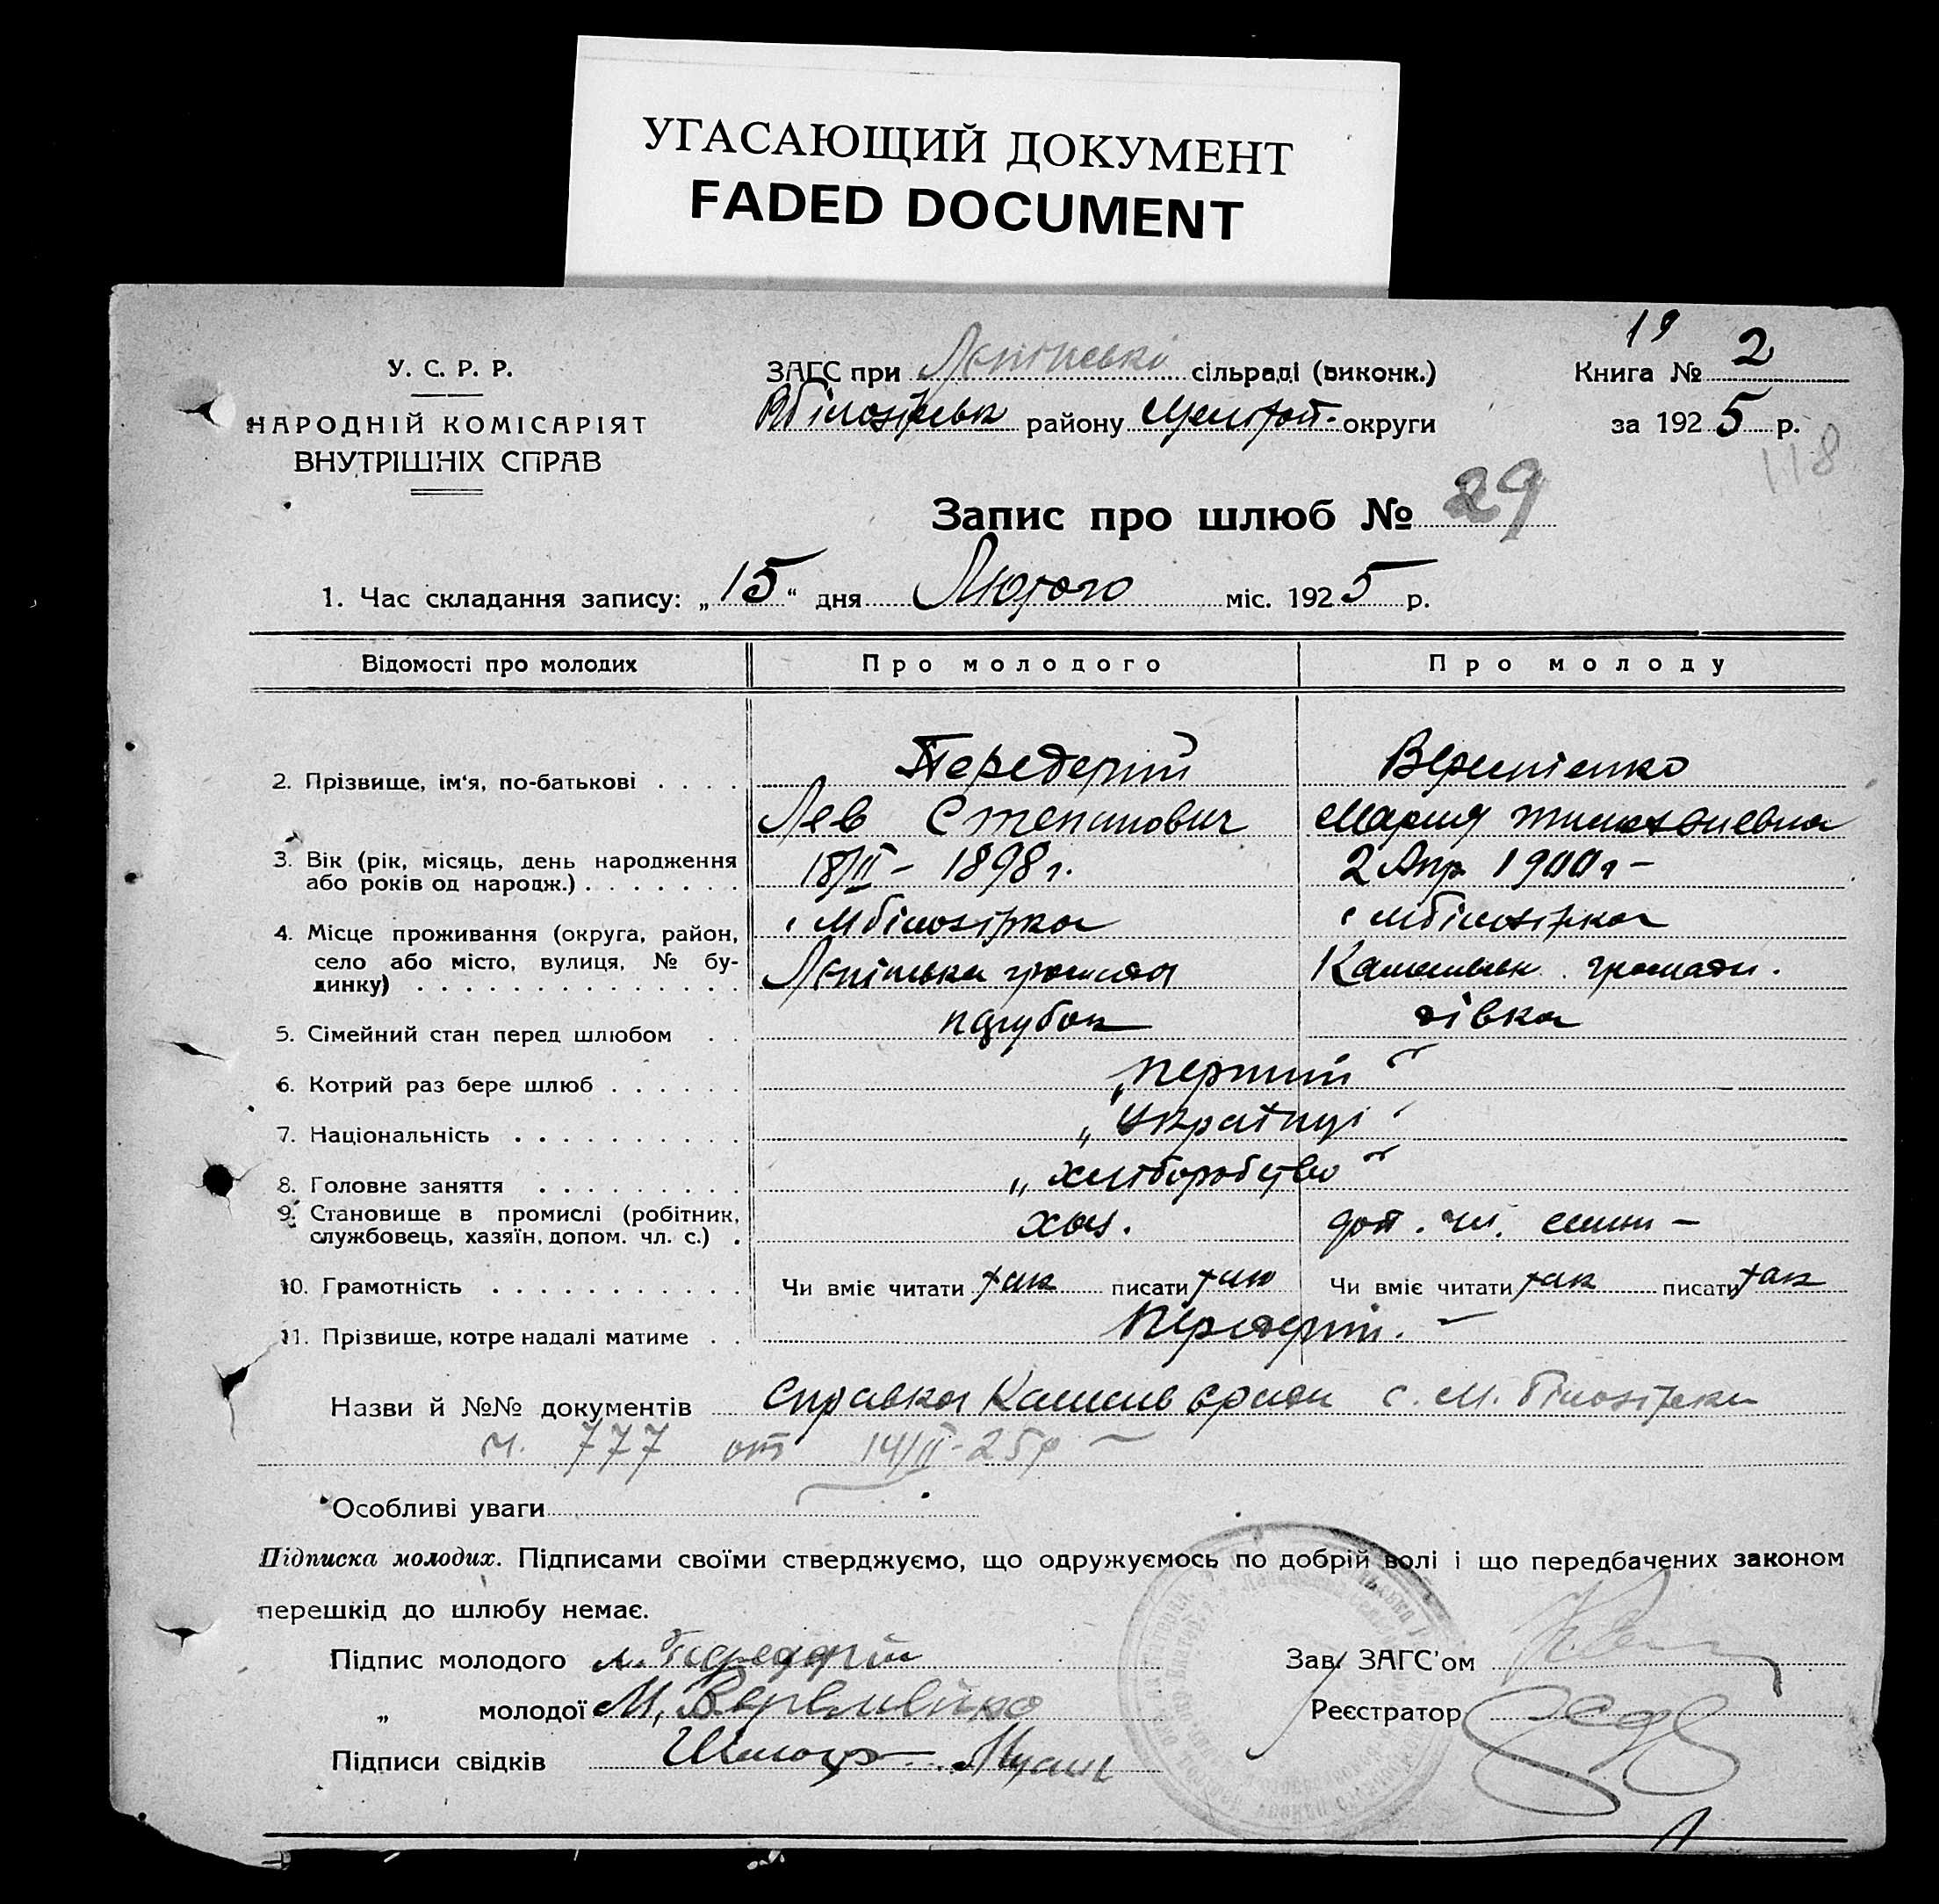 УГАСАЮЩИЙ ДОКУМЕНТ
FADED DOCUMENT
19
У. С. Р. Р.
ЗАГС при Ленінські сільраді (виконк.)
Книга № 2
НАРОДНІЙ КОМІСАРІЯТ
ВНУТРІШНІХ СПРАВ
району Мелітоп. округи
за 1925 р.
118
Запис про шлюб № 29
1. Час складання запису: „15“ дня Лютого міс. 1925 р.
Відомості про молодих Про молодого Про молоду
2. Прізвище, ім'я, по-батькові
Передерий
Лев Степанович
Мария
3. Вік (рік, місяць, день народження
або років од народж.)
18/II - 1898 г.
2 Апр 1900 г -
4. Місце проживання (округа, район,
село або місто, вулиця, № бу-
динку)
с Мбілозірка
Ленінська громада
с Мбілозірка
громади.
5. Сімейний стан перед шлюбом парубок дівка
6. Котрий раз бере шлюб „перший“
7. Національність „Українці“
8. Головне заняття „хліборобство“
9. Становище в промислі (робітник,
службовець, хазяїн, допом. чл. с.)
хоз.
доп. чл. семьи -
10. Грамотність Чи вміє читати так писати так Чи вміє читати так писати так
11. Прізвище, котре надалі матиме Передерий. -
Назви й №№ документів Справка с. М. Білозірки
ч. 777 от 14/II-25р
Особливі уваги
Підписка молодих. Підписами своїми стверджуємо, що одружуємось по добрій волі і що передбачених законом
перешкід до шлюбу немає.
Підпис молодого Л. Передерій
Зав. ЗАГС'ом
„ молодої М.
Реєстратор
Підписи свідків